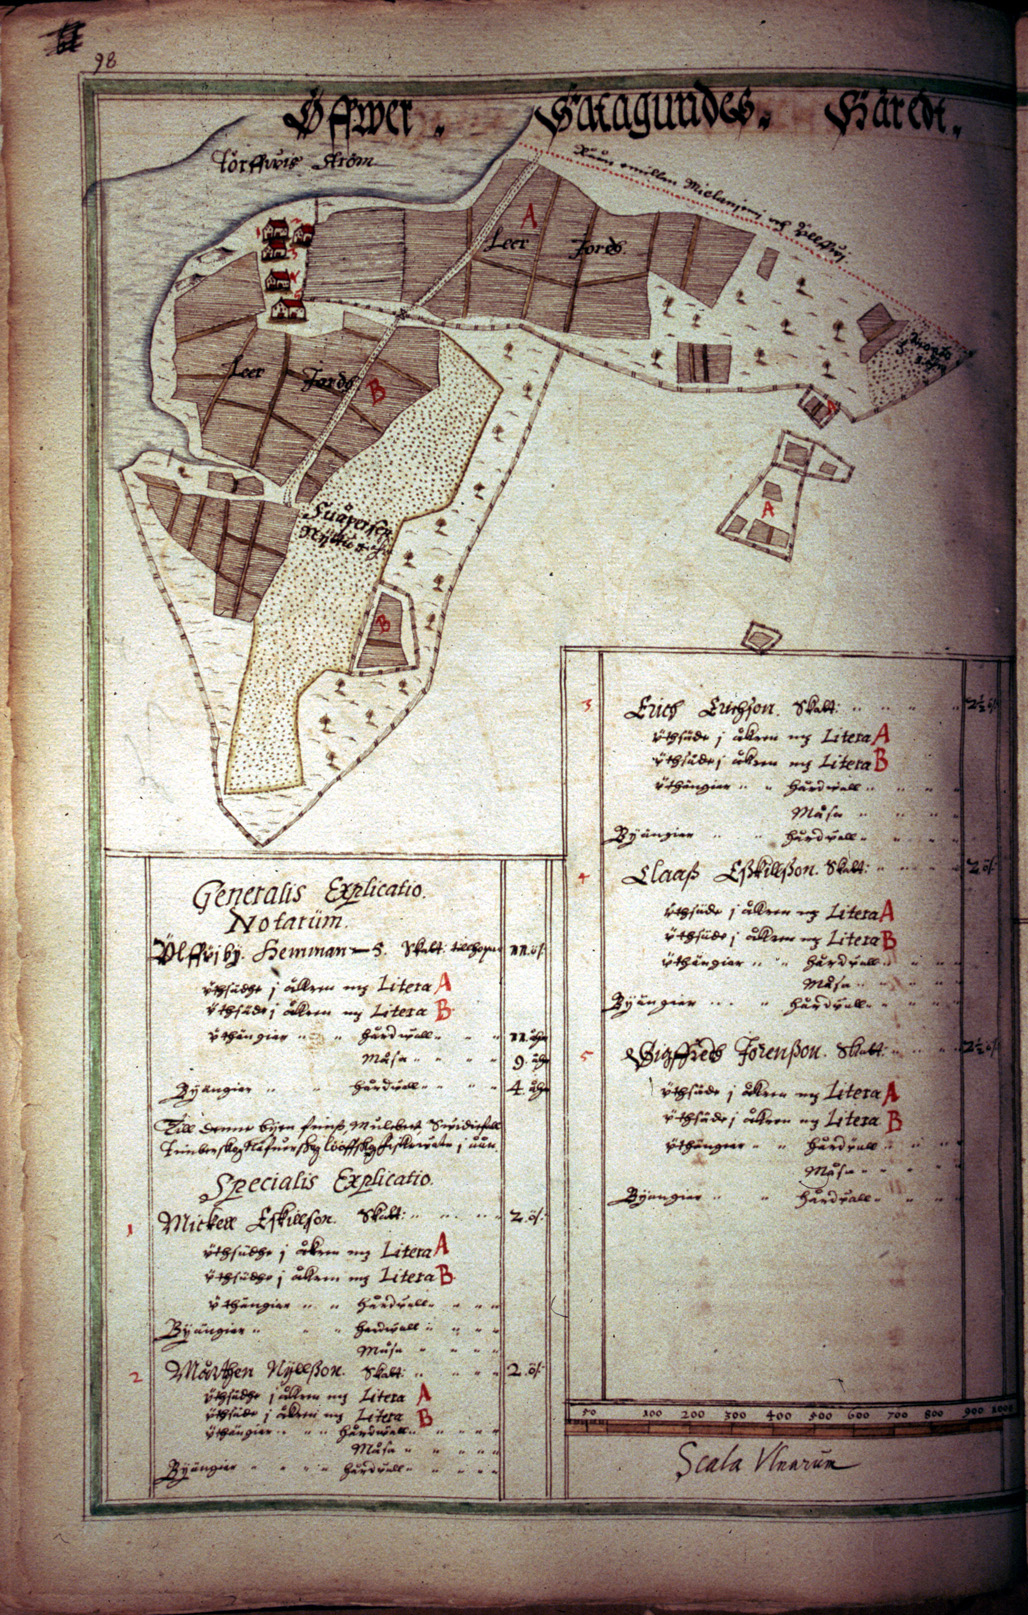 98
Öffwer „ Satagundes „ Häredt „
ström
A
Leer Jordh
1
2
3
4
5
Leer Jordh
B
A
A
B
Generalis Explicatio.
Notarum.
Hemman 5. Skatt:
uthsädhe j åkren mz Litera A
uthsäde j åkren mz Litera B
uthängier „ „ hårdwall „ „ „
Måsa „ „ „ 9.
Byängier „ „ hårdwall „ „ „ 4.
Till denne byen
Specialis Explicatio.
1 Mickell Eskillson. Skatt: „ „ „ 2. ös:
uthsädhe j åkren mz Litera A
uthsädhe j åkren mz Litera B
uthängier „ „ hårdwall „ „ „
Byängier „ „ hardwall „ „ „
Måsa „ „ „
2 Mårthen Nyllßon. Skatt: „ „ „ 2. ös:
uthsädhe j åkren mz Litera A
uthsäde j åkren mz Litera B
uthängier „ „ hårdwall „ „ „
Måsa „ „ „
Byängier „ „ „ hårdwall „ „ „
3 Erich Erichson. Skatt: „ „ „ 2½ ös:
uthsäde j åkren mz Litera A
uthsäde j åkren mz Litera B
uthängier „ „ hårdwall „ „ „
Måsa „ „ „
Byängier „ „ hårdwall „ „ „
4 Claaß Eßkillßon. Skatt: „ „ „ 2 ös:
uthsäde j åkren mz Litera A
uthsäde j åkren mz Litera B
uthängier „ „ hårdwall „ „ „
Måsa „ „ „
Byängier „ „ hårdwall „ „ „
5 Sigffredh Jörenßon. Skatt: „ „ „ 2½ ös:
uthsäde j åkren mz Litera A
uthsäde j åkren mz Litera B
uthängier „ „ hårdwall „ „ „
Måsa „ „ „
Byängier „ „ hårdwall „ „ „
50 100 200 300 400 500 600 700 800 900 1000
Scala Ulnarum